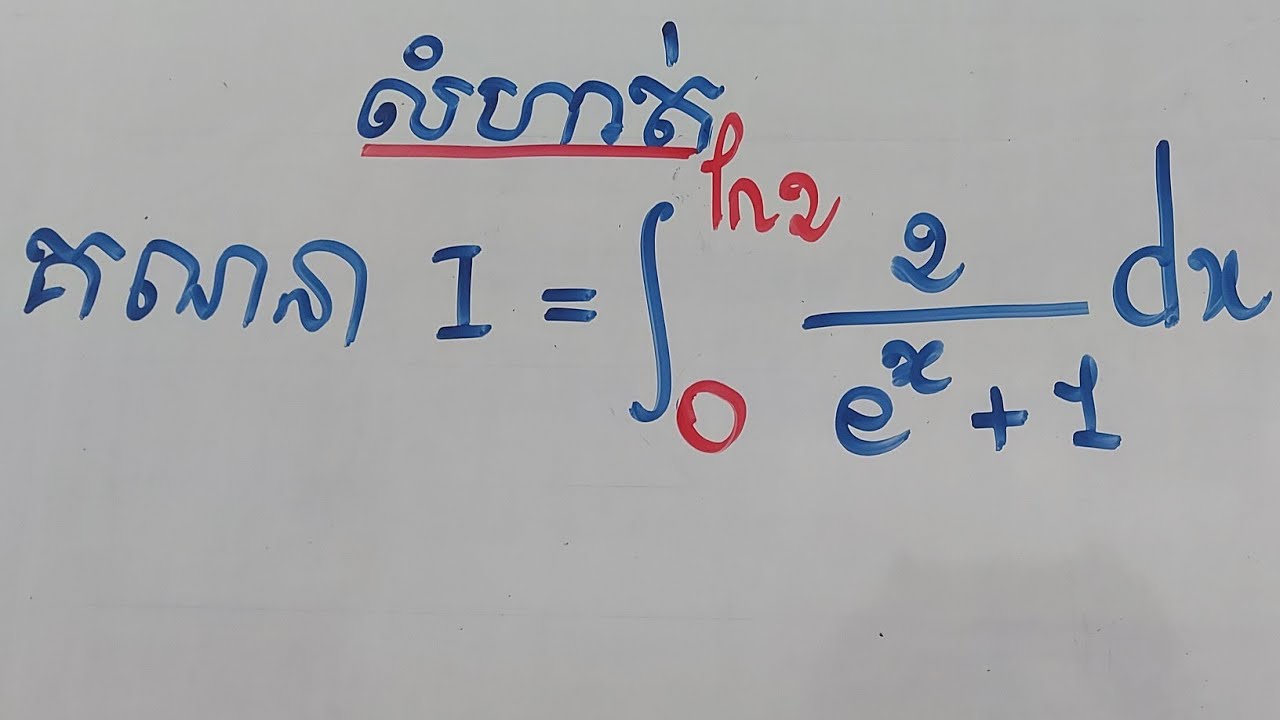 លំហាត់
គណនា I = ∫₀^{ln2} 2/(eˣ + 1) dx